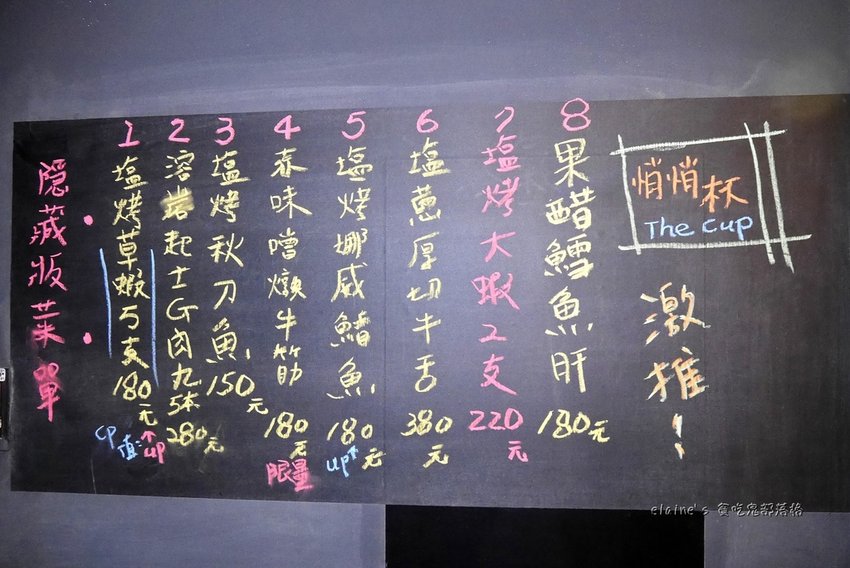 隱藏版菜單
1 塩烤草蝦5支 180元
CP值 up
2 溶岩起士G肉丸 5本 280元
3 塩烤秋刀魚 150元
4 泰味噌燉牛筋 180元
限量
5 塩烤挪威鯖魚 180元
up
6 塩蔥厚切牛舌 380元
7 塩烤大蝦2支 220元
8 果醋鱈魚肝 180元
悄悄杯
The Cup
激推！
elaine's 貪吃鬼部落格